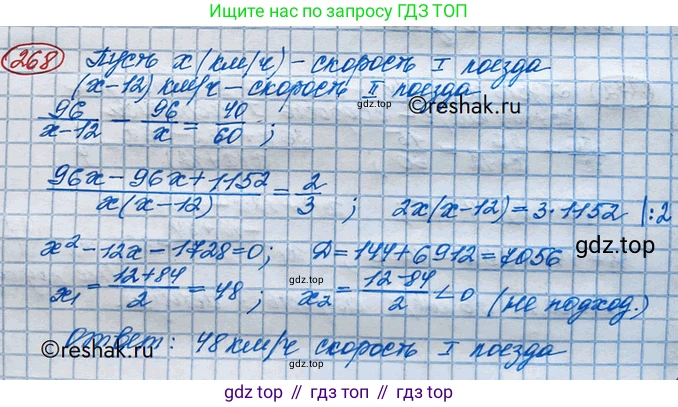 Ищите нас по запросу ГДЗ ТОП
268 Пусть x (км/ч) – скорость I поезда
(x-12) км/ч – скорость II поезда
96/(x-12) - 96/x = 40/60 ;
©reshak.ru
gdz.top
(96x - 96x + 1152)/(x(x-12)) = 2/3 ; 2x(x-12) = 3·1152 |:2
gdz.top
x² - 12x - 1728 = 0; Д = 144 + 6912 = 7056
gdz.top
x₁ = (12+84)/2 = 48 ; x₂ = (12-84)/2 < 0 (не подход.)
Ответ: 48 км/ч скорость I поезда
©reshak.ru
gdz.top
gdz.top // гдз.топ // gdz.top